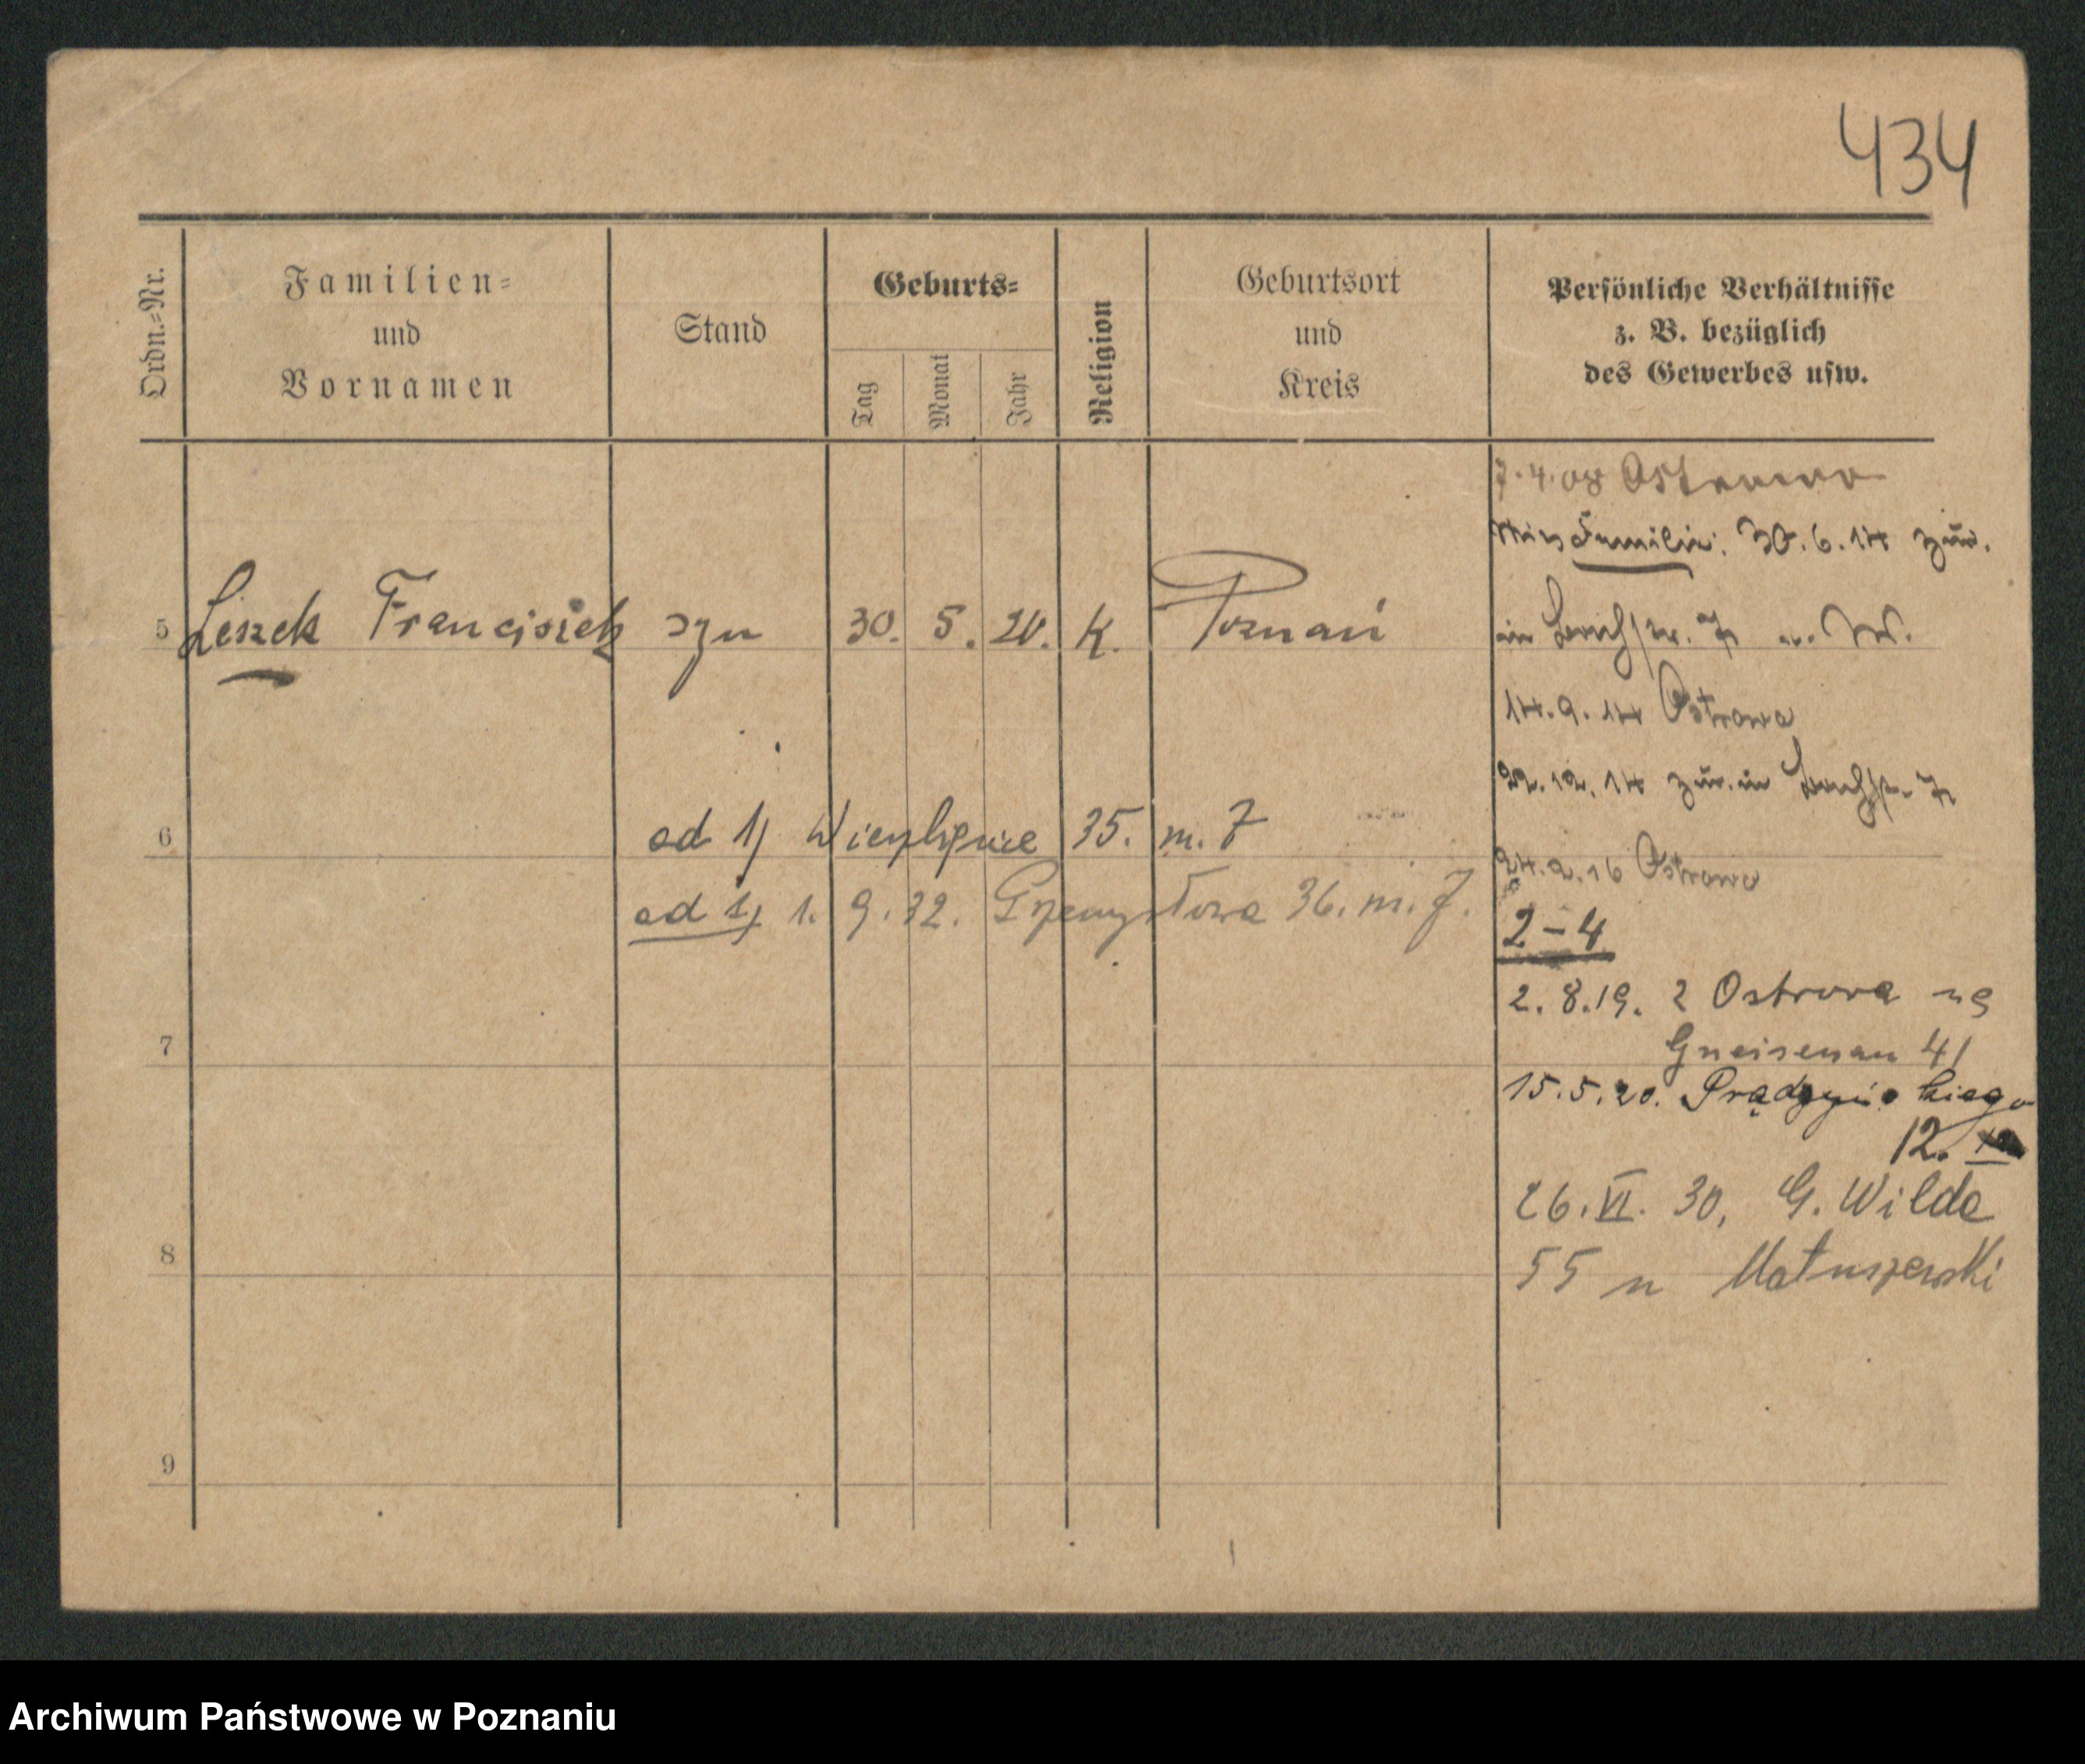 434
Ordn.-Nr.
Familien-
und
Vornamen
Stand
Geburts-
Tag
Monat
Jahr
Religion
Geburtsort
und
Kreis
Persönliche Verhältnisse
z. B. bezüglich
des Gewerbes usw.
7.4.08 Ostrowo
Familie. 30.6.14 zur.
5 Leszek Franciszek syn 30. 5. 20. K. Poznań
in 7
14.9.14 Ostrowo
22.12.14 zur. in 7
6
od 1) 35. m. 7
24.2.16 Ostrowo
od 1) 1. 9. 32. 36. m. 7.
2-4
2. 8. 19. z Ostrowa na
7
Gneisenau 41
15.5.20. Prądzyńskiego
12.
26. VI. 30, G. Wilda
8
55 u Matuszewski
9
Archiwum Państwowe w Poznaniu